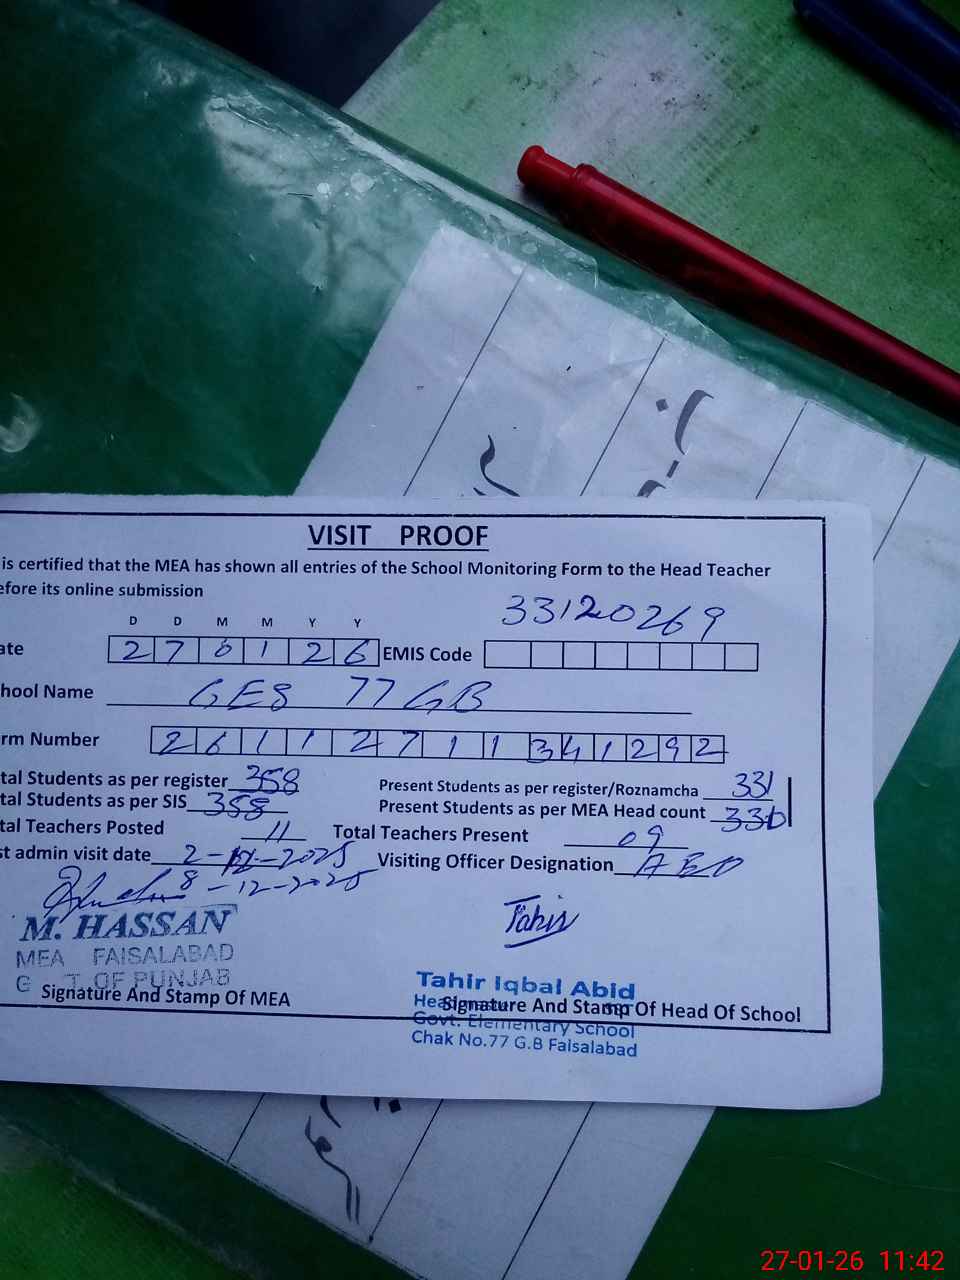 VISIT PROOF
is certified that the MEA has shown all entries of the School Monitoring Form to the Head Teacher
efore its online submission
33120269
D D M M Y Y
ate 2 7 0 1 2 6 EMIS Code
hool Name GES 77 GB
rm Number 2 6 1 1 2 7 1 1 3 4 1 2 9 2
tal Students as per register 358 Present Students as per register/Roznamcha 331
tal Students as per SIS 358 Present Students as per MEA Head count 330
tal Teachers Posted 11 Total Teachers Present 09
st admin visit date 2-12-2025 Visiting Officer Designation AEO
8-12-2025
Tahir
M. HASSAN
MEA FAISALABAD
G T. OF PUNJAB
Signature And Stamp Of MEA
Tahir Iqbal Abid
Signature And Stamp Of Head Of School
Govt. Elementary School
Chak No.77 G.B Faisalabad
27-01-26 11:42